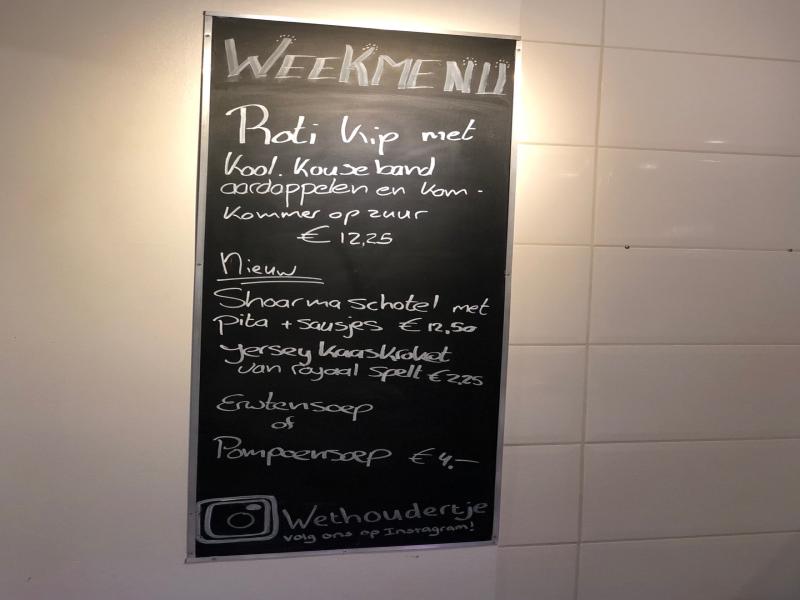 WEEKMENU
Roti Kip met
Kool. Kouseband
aardappelen en kom-
kommer op zuur
€ 12,25
Nieuw
Shoarma schotel met
pita + sausjes € 12,50
Jersey kaaskroket
van royaal spelt € 2,25
Erwtensoep
of
Pompoensoep € 4.—
Wethoudertje
Volg ons op Instagram!